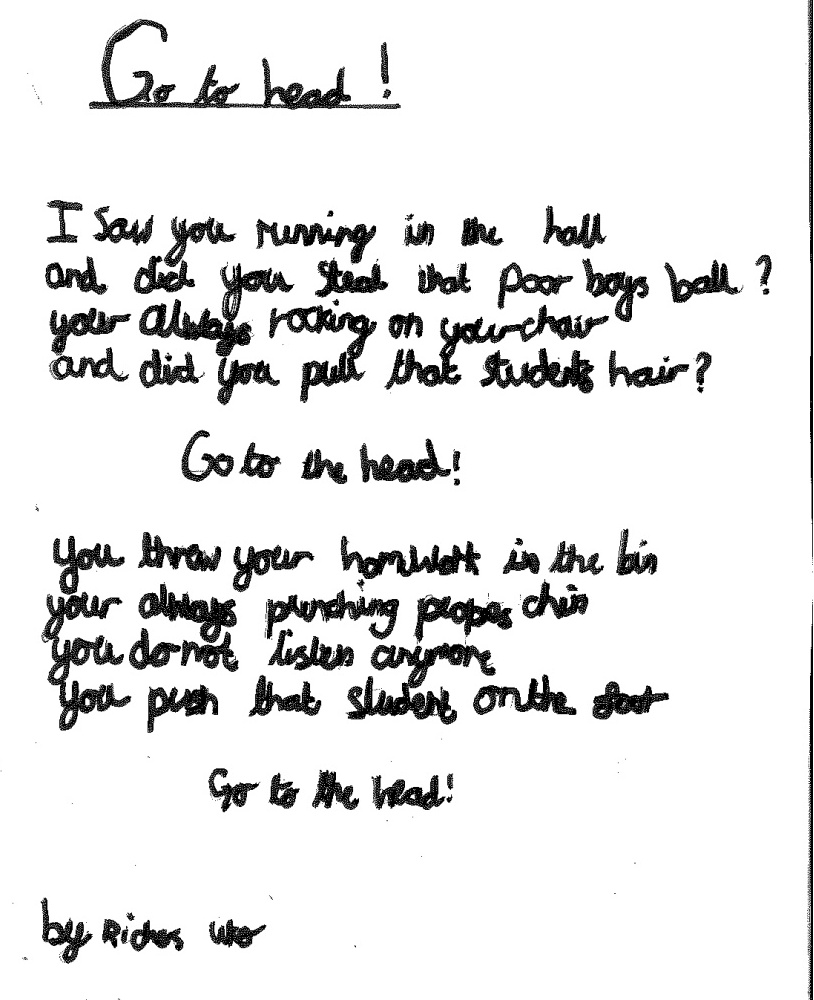 Go to head!
I saw you running in the hall
and did you steal that poor boys ball?
your always rocking on your chair
and did you pull that students hair?
Go to the head!
you threw your homwork in the bin
your always punching peopes chin
you do not listen anymore
you push that student on the
Go to the head!
by